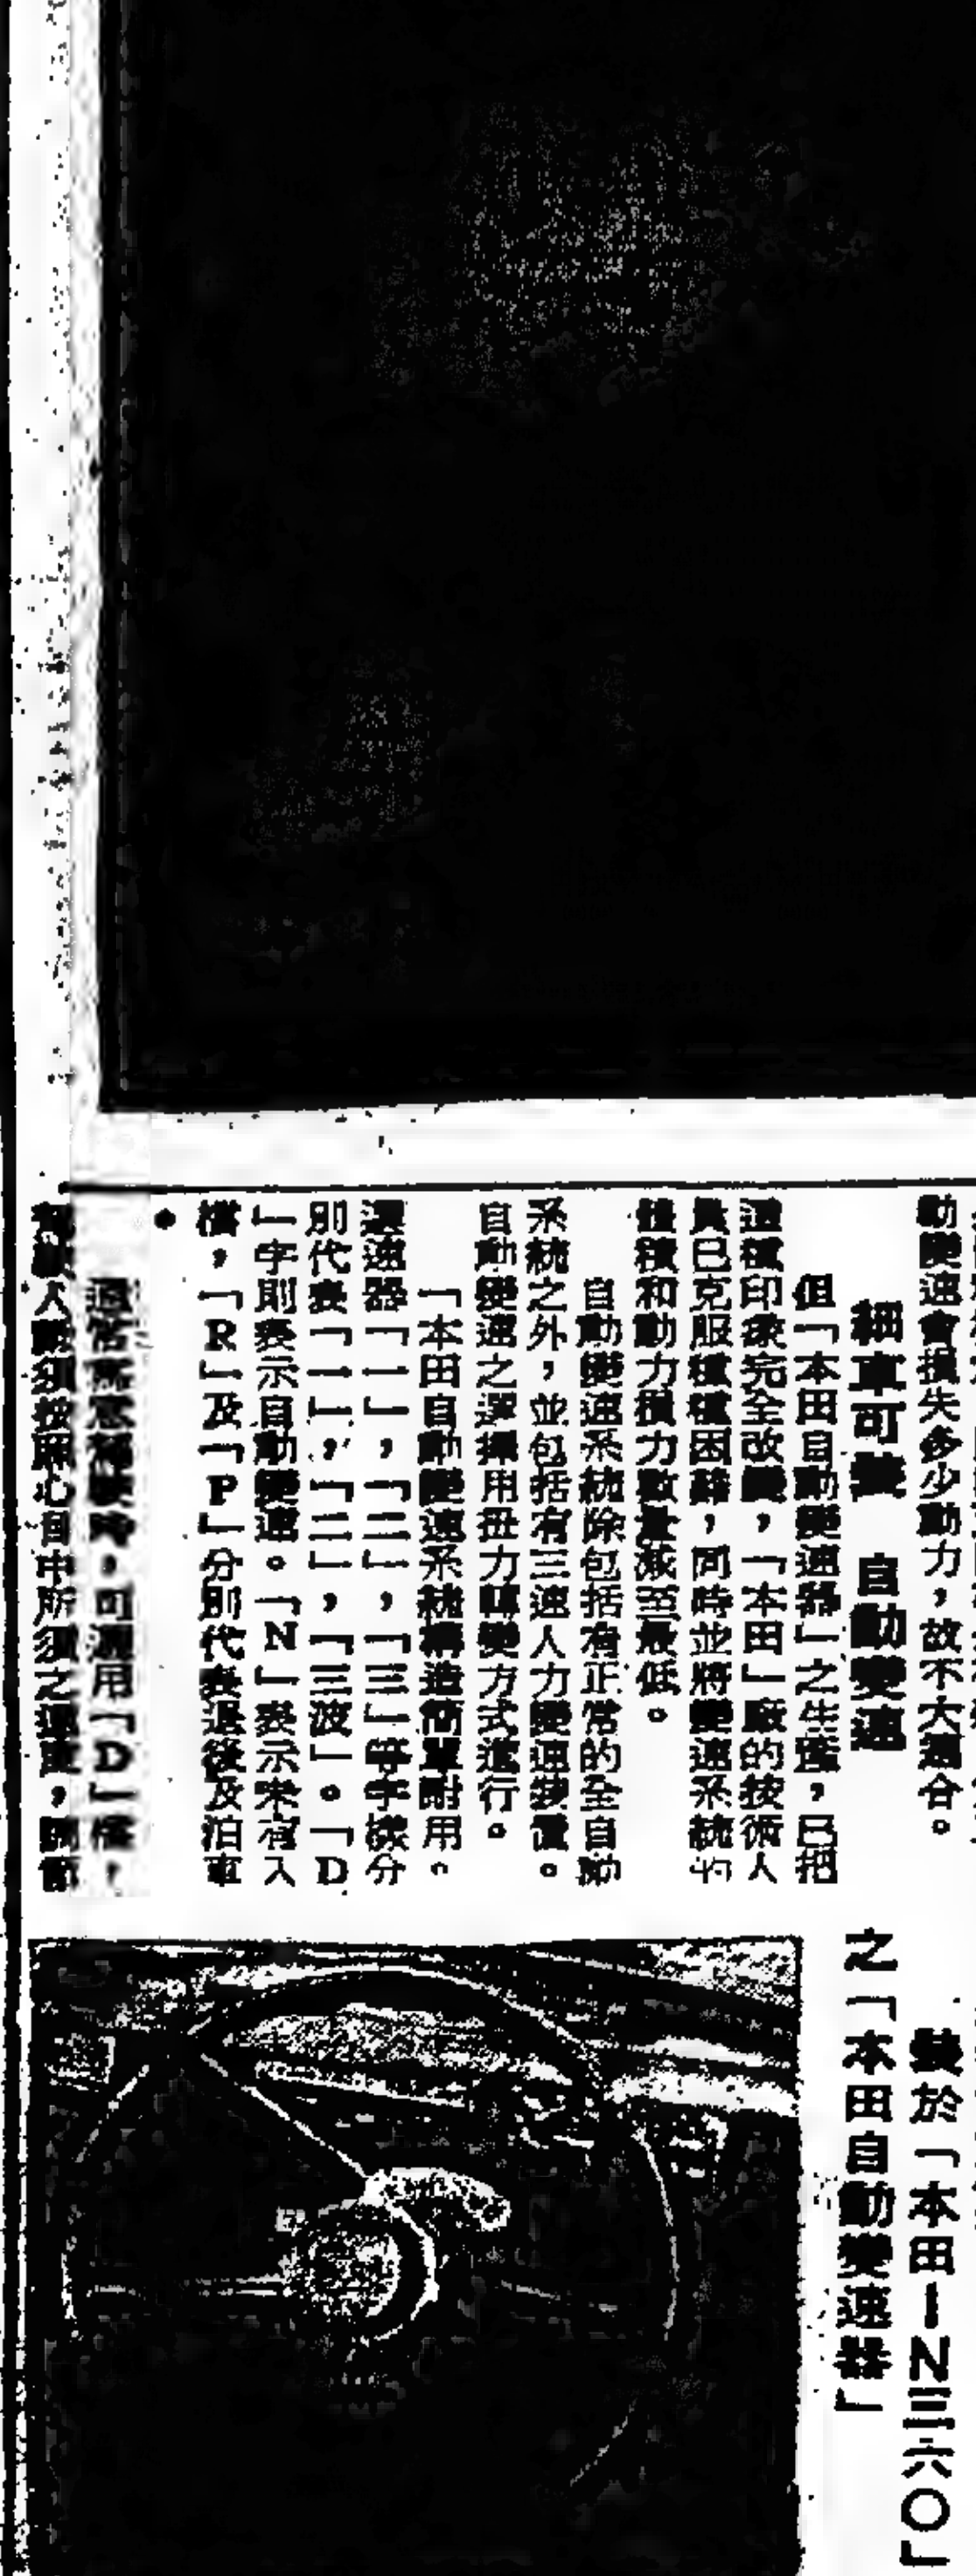 動變速會損失多少動力，故不大適合。
細車可裝　自動變速
但「本田自動變速器」之生產，已把
這種印象完全改變，「本田」廠的技術人
員已克服種種困難，同時並將變速系統的
體積和動力損力數量減至最低。
自動變速系統除包括有正常的全自動
系統之外，並包括有三速人力變速裝置。
自動變速之選擇用扭力轉變方式進行。
「本田自動變速系統構造簡單耐用。
選速器「一」，「二」，「三」等字樣分
別代表「一」，「二」，「三波」。「D
」字則表示自動變速。「N」表示未有入
檔，「R」及「P」分別代表退後及泊車
。
通常 時，可選用「D」檔，
人 須按照心目中所須之速度，調節
裝於「本田－N三六〇」
之「本田自動變速器」